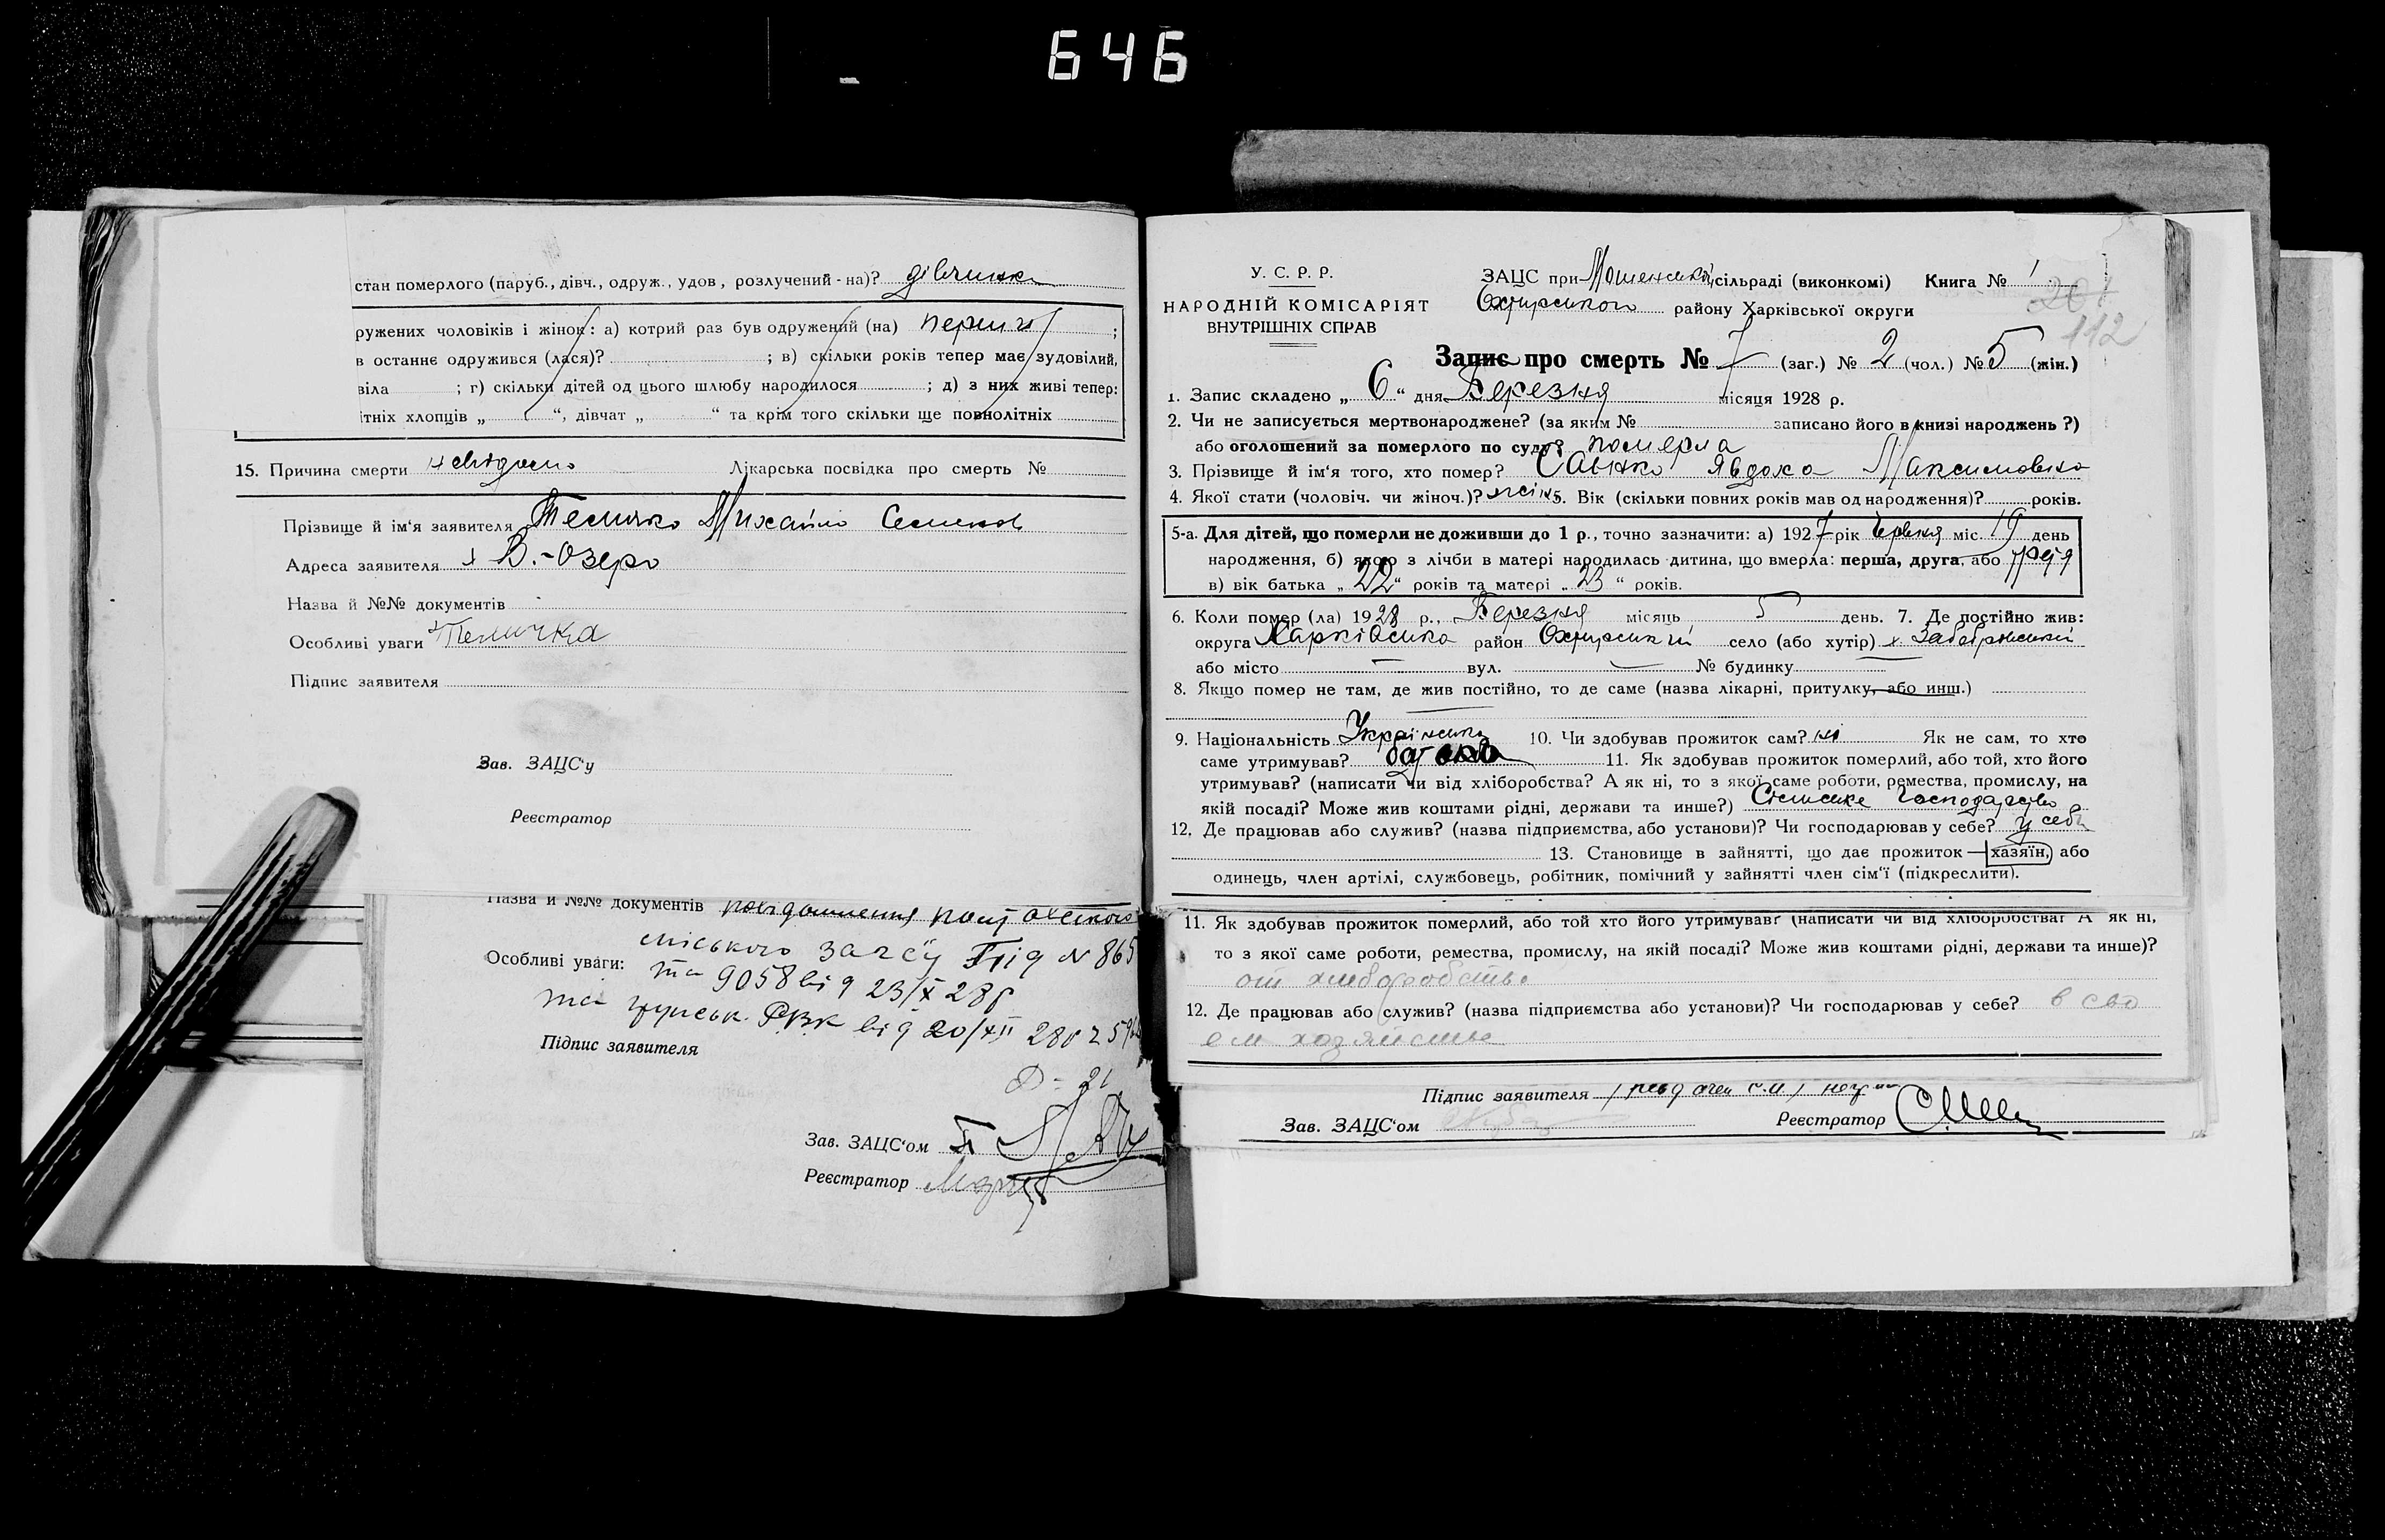 646
стан померлого (паруб., дівч., одруж., удов, розлучений-на)? дівчинка
ружених чоловіків і жінок: а) котрий раз був одружений (на) ;
в останнє одружився (лася)? ; в) скільки років тепер має зудовілий,
віла ; г) скільки дітей од цього шлюбу народилося ; д) з них живі тепер:
ітніх хлопців „ “, дівчат „ “ та крім того скільки ще повнолітніх
15. Причина смерти невідомо Лікарська посвідка про смерть №
Прізвище й ім'я заявителя Михайло
Адреса заявителя х В.-Озеро
Назва й №№ документів
Особливі уваги
Підпис заявителя
Зав. ЗАЦС'у
Реєстратор
Назва й №№ документів повідомлення
міського загсу № 865
Особливі уваги: та 9058 від 23/X 28р
та РВК від 20/XII 28р
Підпис заявителя
Зав. ЗАЦС'ом
Реєстратор
У. С. Р. Р.
НАРОДНІЙ КОМІСАРІЯТ
ВНУТРІШНІХ СПРАВ
ЗАЦС при сільраді (виконкомі) Книга № 1
Охтирського району Харківської округи
112
Запис про смерть № 7 (заг.) № 2 (чол.) № 5 (жін.)
1. Запис складено „ 6 “ дня Березня місяця 1928 р.
2. Чи не записується мертвонароджене? (за яким № записано його в книзі народжень?)
або оголошений за померлого по суду? померла
3. Прізвище й ім'я того, хто помер? Явдоха Максимовна
4. Якої стати (чоловіч. чи жіноч.)? жін 5. Вік (скільки повних років мав од народження)? років.
5-а. Для дітей, що померли не доживши до 1 р., точно зазначити: а) 1927 рік Червня міс. 19 день
народження, б) якою з лічби в матері народилась дитина, що вмерла: перша, друга, або третя
в) вік батька „ 22 “ років та матері „ 23 “ років.
6. Коли помер (ла) 1928 р., Березня місяць 5 день. 7. Де постійно жив:
округа Харківська район Охтирський село (або хутір) х.
або місто — вул. — № будинку —
8. Якщо помер не там, де жив постійно, то де саме (назва лікарні, притулку, або инш.)
9. Національність Українська 10. Чи здобував прожиток сам? ні Як не сам, то хто
саме утримував? 11. Як здобував прожиток померлий, або той, хто його
утримував? (написати чи від хліборобства? А як ні, то з якої саме роботи, ремества, промислу, на
якій посаді? Може жив коштами рідні, держави та инше?) Сільське господарство
12. Де працював або служив? (назва підприємства, або установи)? Чи господарював у себе? у себе
13. Становище в зайнятті, що дає прожиток — хазяїн, або
одинець, член артілі, службовець, робітник, помічний у зайнятті член сім'ї (підкреслити).
11. Як здобував прожиток померлий, або той хто його утримував? (написати чи від хліборобства? А як ні,
то з якої саме роботи, ремества, промислу, на якій посаді? Може жив коштами рідні, держави та инше)?
от хлеборобства
12. Де працював або служив? (назва підприємства або установи)? Чи господарював у себе? в сво
ем хозяйстве
Підпис заявителя
Зав. ЗАЦС'ом Реєстратор